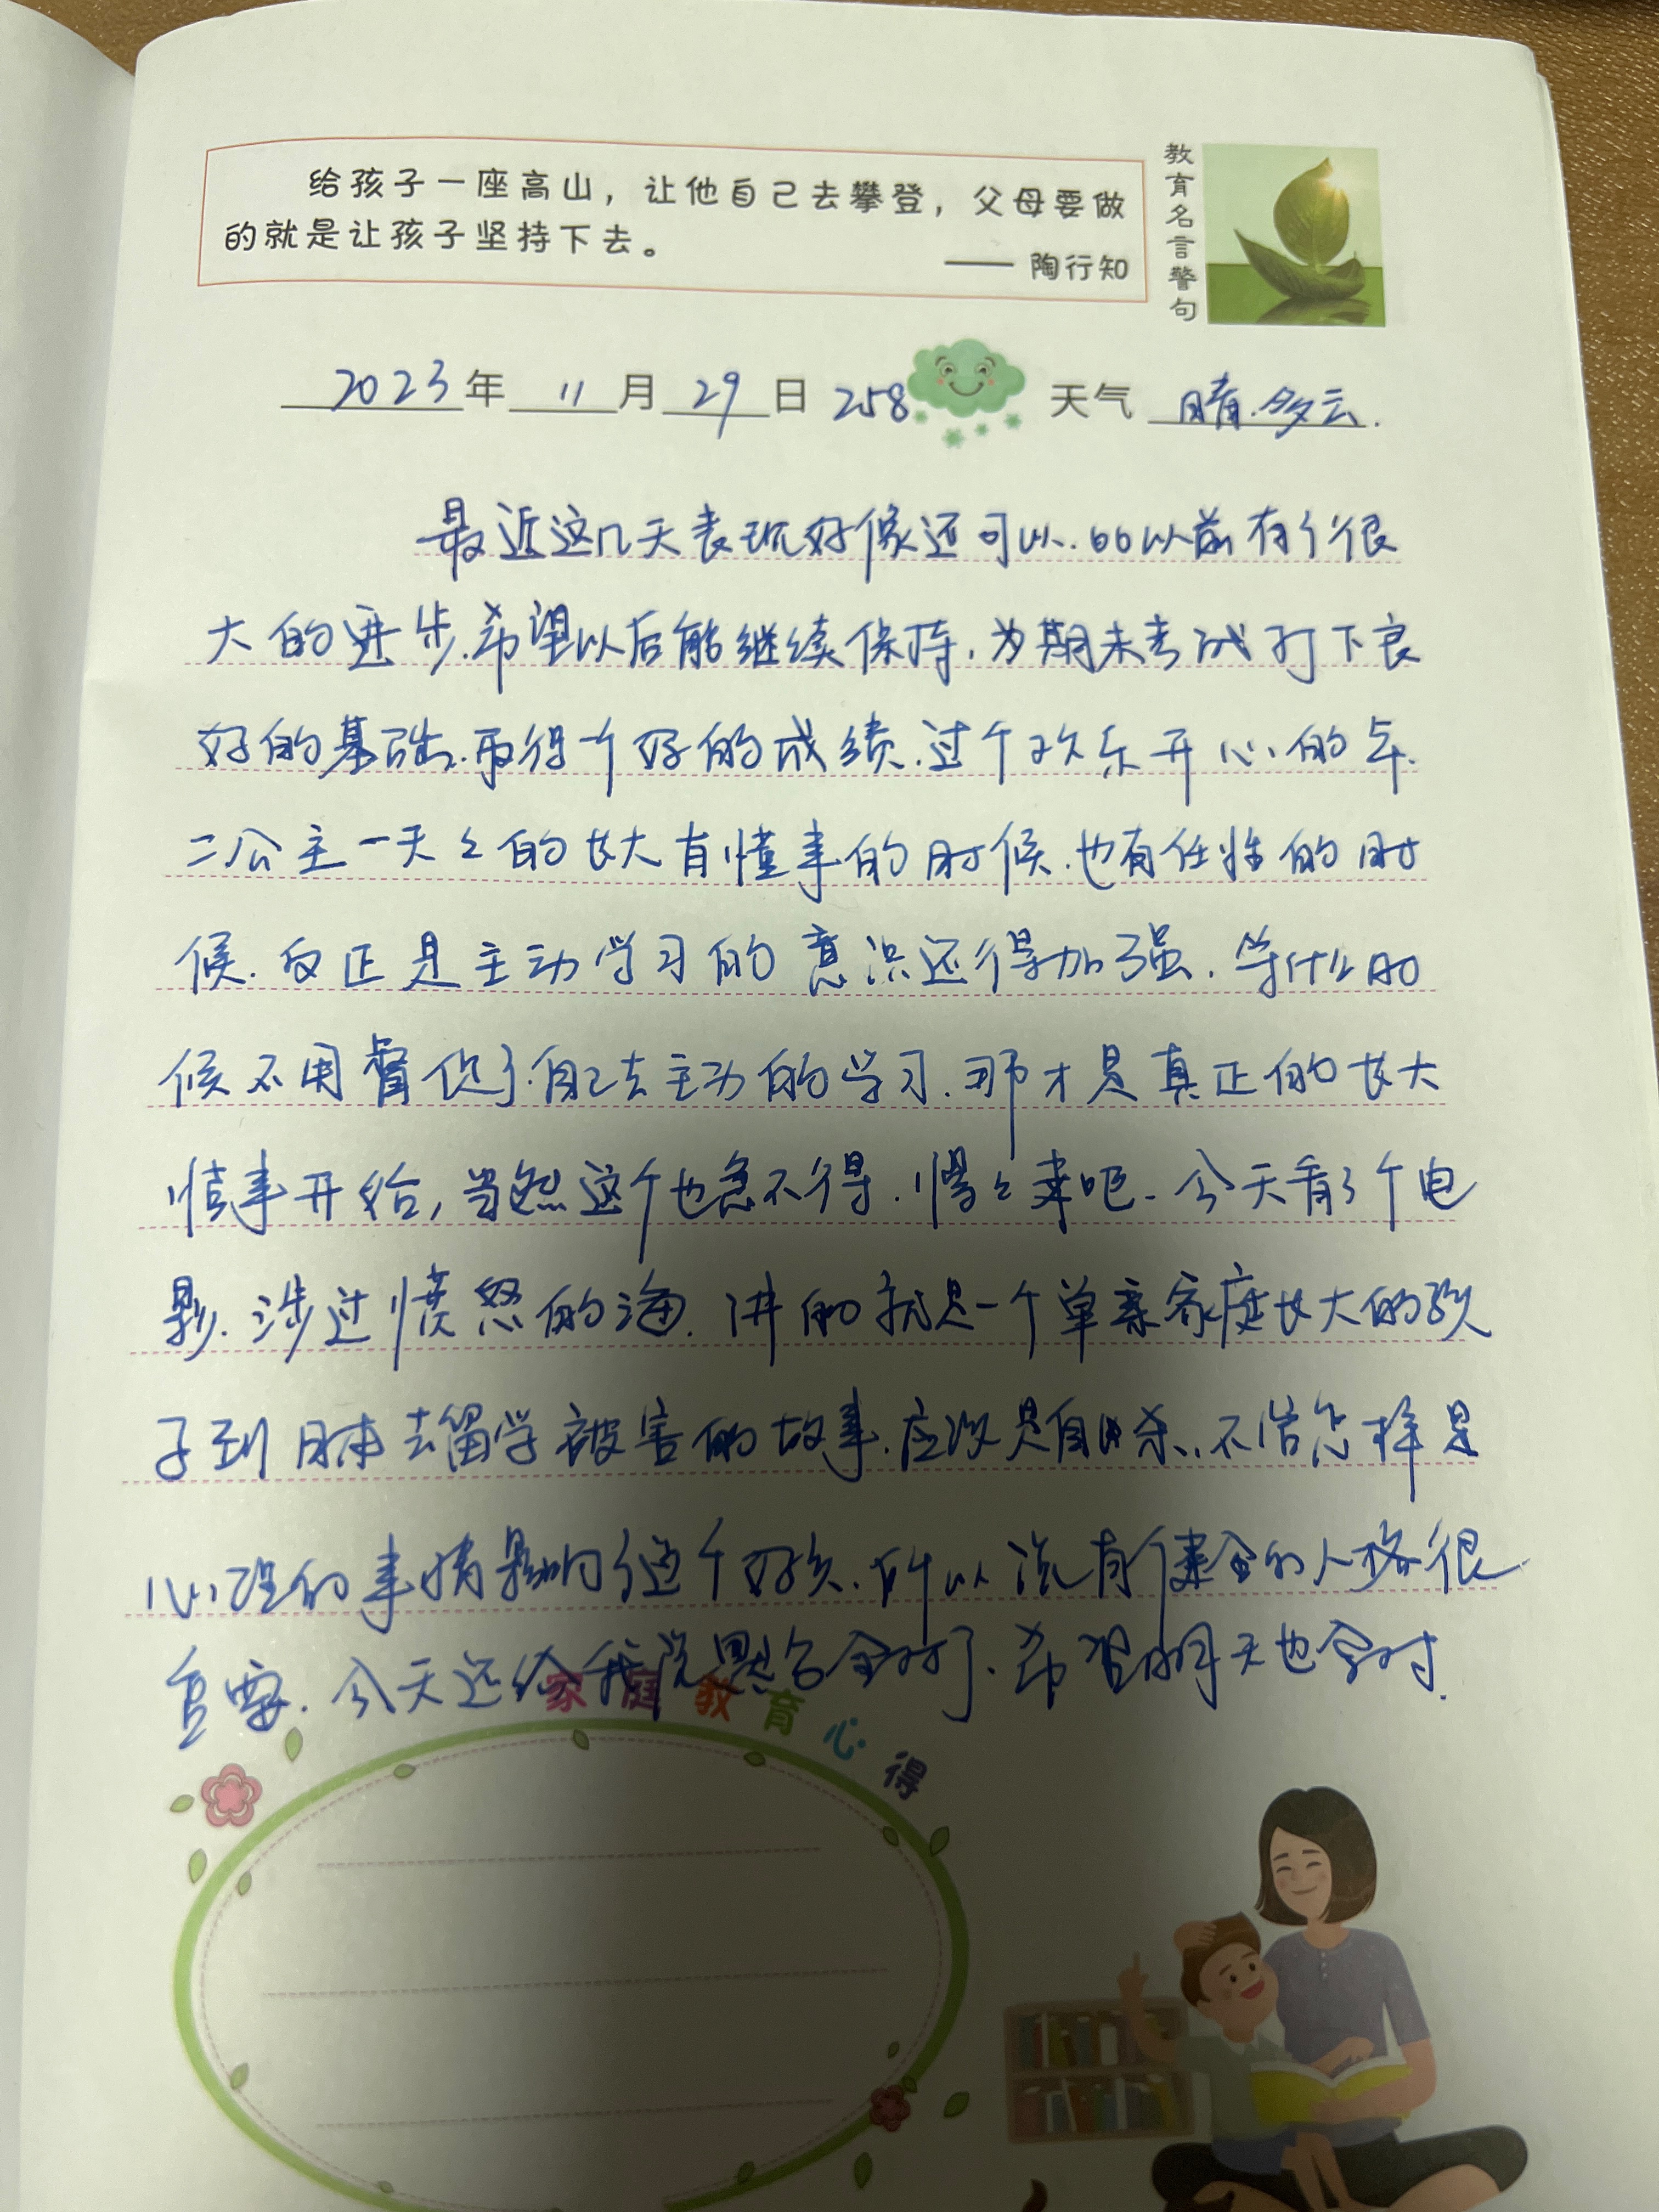 给孩子一座高山，让他自己去攀登，父母要做
的就是让孩子坚持下去。
—— 陶行知
教育名言警句
2023年 11月 29日 258 天气 晴.多云.
最近这几天表现好像还可以.比以前有个很
大的进步.希望以后能继续保持.为期末考试打下良
好的基础.取得个好的成绩.过个欢乐开心的年.
二公主一天々的长大有懂事的时候.也有任性的时
候.反正是主动学习的意识还得加强.等什么时
候不用督促了.自己去主动的学习.那才是真正的长大
懂事开始,当然这个也急不得.慢々来吧.今天看了个电
影.涉过愤怒的海.讲的就是一个单亲家庭长大的孩
子到日本去留学被害的故事.应该是自杀..不管怎样是
心理的事情影响了这个女孩.所以说有个健全的人格很
重要.今天还给我说黑台全对了.希望明天也全对.
家庭教育心得